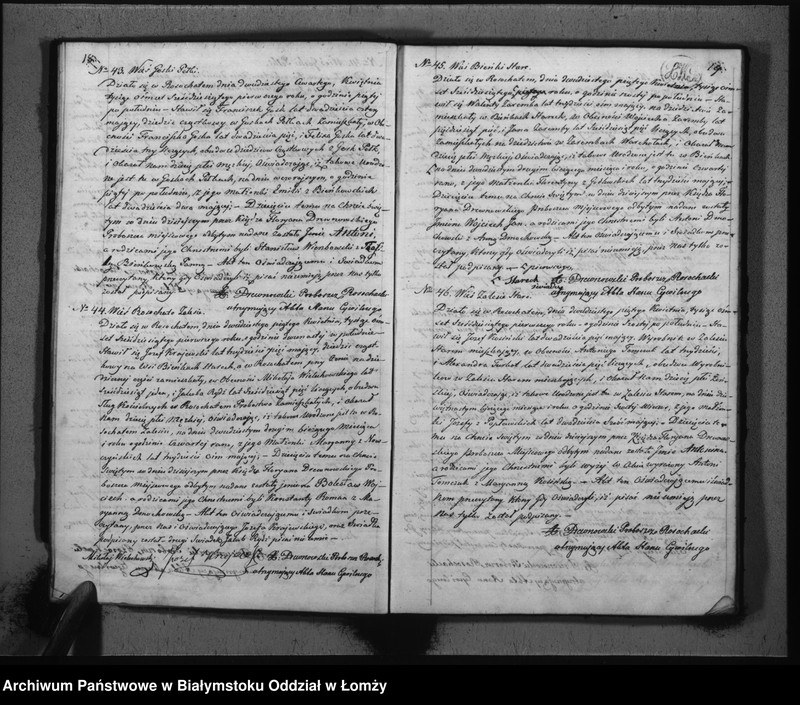 18.
№ 43. Wieś Goski Pełki.
Działo się w Rosochatem dnia dwudziestego czwartego, Kwietnia
tysiąc ośmset sześćdziesiątego pierwszego roku, o godzinie piątej
po południu – Stawił się Franciszek Gosk lat dwadzieścia cztery
mający, dziedzic cząstkowy w Goskach Pełkach zamieszkały, w Obe-
cności Franciszka Goska lat dwadzieścia pięć, i Felixa Goska lat dwa-
dzieścia trzy liczących, obudwu dziedziców cząstkowych z Gosk Pełk.
i okazał Nam dziecię płci męzkiej, Oświadczając, iż takowe urodzo-
ne jest tu w Goskach Pełkach, na dniu wczorajszym, o godzinie
piątej po południu, z jego Małżonki Emilii z Bieńkowskich
lat dwadzieścia dwa mającej – Dziecięciu temu na Chrzcie Świę-
tym w dniu dzisiejszym przez Księdza Floryana Drewnowskiego
Proboszcza miejscowego odbytym nadane zostało Imie Antoni,
a rodzicami jego Chrzestnemi byli Stanisław
Akt ten Oświadczającemu i Świadkom
przeczytany, którzy gdy Oświadczyli iż pisać nieumieją, przez Nas tylko
został podpisany –
X. Drewnowski Proboszcz Rosochacki
utrzymujący Akta Stanu Cywilnego
№ 44. Wieś Rosochate Zalesie.
Działo się w Rosochatem, dnia dwudziestego piątego Kwietnia, tysiąc ośm-
set sześćdziesiątego pierwszego roku – o godzinie dwunastej w południe –
Stawił się Józef Krajewski lat trzydzieści pięć mający, dziedzic cząst-
kowy na Wsi
zamieszkały, w Obecności Mikołaja Wieliczkowskiego lat
i Jakuba Pyśk lat sześćdziesiąt pięć liczących, obudwu
Sług Kościelnych w Rosochatem Probostwie zamieszkałych, i okazał
Nam dziecię płci Męzkiej, oświadczając, iż takowe Urodzone jest tu w Ro-
sochatem Zalesiu, na dniu dwudziestym drugim bieżącego Miesiąca
i roku o godzinie czwartej rano, z jego Małżonki Maryanny z
lat trzydzieści ośm mającej – Dziecięciu temu na Chrzcie
Świętym w dniu dzisiejszym przez Księdza Floryana Drewnowskiego Pro-
boszcza miejscowego odbytym nadane zostało imiona Bolesław Woj-
ciech – a rodzicami jego Chrzestnemi byli Konstanty Roman z Ma-
ryanną Drewnowską – Akt ten Oświadczającemu i Świadkom prze-
czytany, przez Nas i Oświadczającego Józefa Krajewskiego, oraz Świadka
podpisany został – drugi Świadek Jakub Pyśk pisać nie umie –
X. Drewnowski Proboszcz Rosoch:
utrzymujący Akta Stanu Cywilnego
19.
№ 45. Wieś Bieńki Stare.
Działo się w Rosochatem, dnia dwudziestego piątego Kwietnia, tysiąc ośm-
set sześćdziesiątego pierwszego roku, o godzinie szóstej po południu – Sta-
wił się Walenty Zaremba lat trzydzieści ośm mający, na dziedzictwie Za-
mieszkały w Bieńkach Starych, w Obecności Wojciecha Zaremby lat
pięćdziesiąt pięć, i Jana Zaremby lat sześćdziesiąt pięć liczących, obudwu
zamieszkałych na dziedzictwie w Zarembach, i okazał Nam
Dziecię płci Męzkiej Oświadczając, iż takowe Urodzone jest tu w Bieńkach
na dniu dwudziestym drugim bieżącego miesiąca i roku, o godzinie czwartej
rano, z jego Małżonki Florentyny z Gołaszewskich lat trzydzieści mającej –
Dziecięciu temu na Chrzcie Świętym w dniu dzisiejszym przez Księdza Flo-
ryana Drewnowskiego Proboszcza miejscowego odbytym nadane zostały
Imiona Wojciech Jan. a rodzicami jego Chrzestnemi byli Antoni
z Anną – Akt ten Oświadczającemu i Świadkom prze-
czytany, którzy gdy Oświadczyli iż pisać nieumieją przez Nas tylko zo-
stał podpisany –
X. Drewnowski Proboszcz Rosochacki
utrzymujący Akta Stanu Cywilnego
№ 46. Wieś Zalesie Stare.
Działo się w Rosochatem, dnia dwudziestego piątego Kwietnia, tysiąc ośm-
set sześćdziesiątego pierwszego roku – o godzinie szóstej po południu – Sta-
wił się Józef Kosiński lat dwadzieścia pięć mający, Wyrobnik w Zalesiu
Starem mieszkający, w obecności Antoniego Tomczuk lat trzydzieści,
i Alexandra lat dwadzieścia pięć liczących, obudwu Wyrobni-
ków w Zalesiu Starem mieszkających, i okazał Nam dziecię płci Żeń-
skiej, Oświadczając, iż takowe Urodzone jest tu w Zalesiu Starem, na dniu
bieżącego miesiąca i roku o godzinie szóstej Wieczór, z jego Małżon-
ki Józefy z lat dwadzieścia sześć mającej – Dziecięciu te-
mu na Chrzcie Świętym w dniu dzisiejszym przez Księdza Floryana Drewno-
wskiego Proboszcza Miejscowego odbytym nadane zostało Imie Antonina.
a rodzicami jego Chrzestnemi byli wyżej w Akcie wyrażony Antoni
Tomczuk z Maryanną Kosińską – Akt ten Oświadczającemu i świad-
kom przeczytany, którzy gdy Oświadczyli, iż pisać nieumieją przez
Nas tylko został podpisany –
X. Drewnowski Proboszcz Rosochacki
utrzymujący Akta Stanu Cywilnego
Archiwum Państwowe w Białymstoku Oddział w Łomży